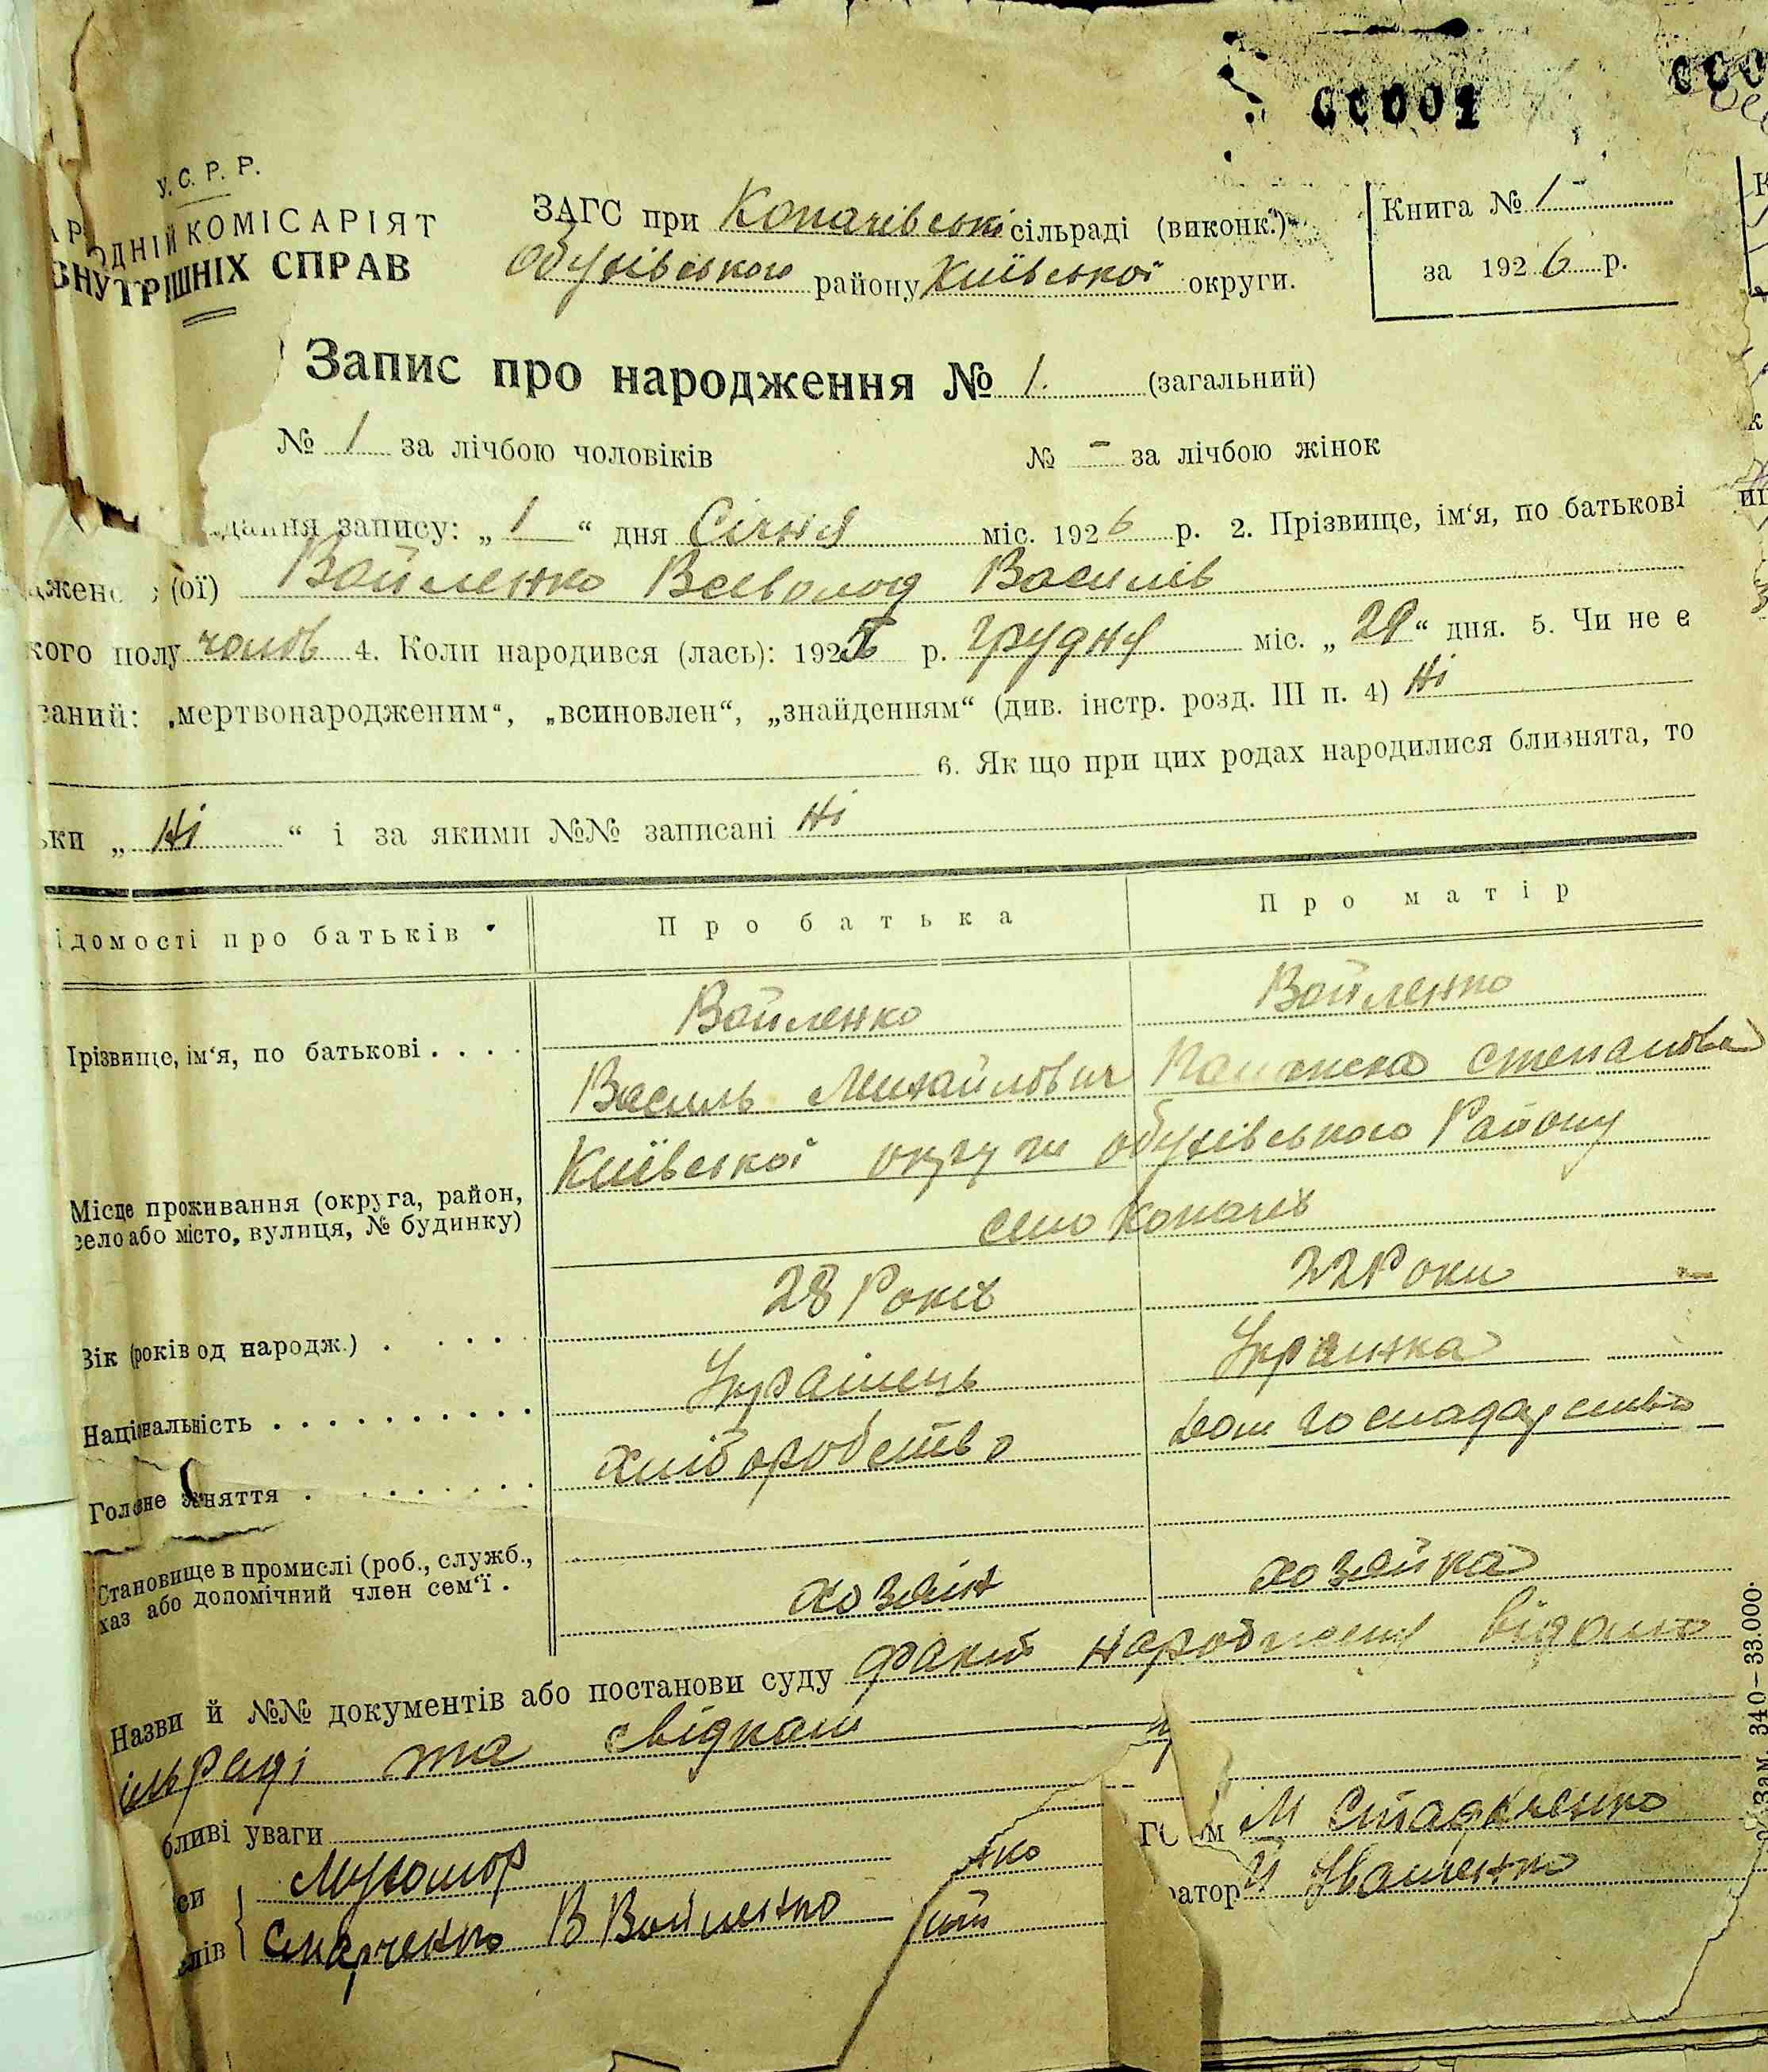 00001
У. С. Р. Р.
ОДНІЙ КОМІСАРІЯТ
ВНУТРІШНІХ СПРАВ
ЗАГС при Копачівські сільраді (виконк.)
Обухівського району Київської округи.
Книга № 1
за 1926 р.
Запис про народження № 1. (загальний)
№ 1 за лічбою чоловіків № - за лічбою жінок
дання запису: „ 1 “ дня Січня міс. 1926 р. 2. Прізвище, ім‘я, по батькові
джено (ої) Войленко Всеволод Василів
кого полу чолов 4. Коли народився (лась): 1925 р. грудня міс. „ 29 “ дня. 5. Чи не є
заний: „мертвонародженим“, „всиновлен“, „знайденням“ (див. інстр. розд. III п. 4) Ні
6. Як що при цих родах народилися близнята, то
ьки „ Ні “ і за якими №№ записані Ні
ідомості про батьків Про батька Про матір
Войленко Войленко
різвище, ім‘я, по батькові . . . .
Василь Михайлович степанова
Київської округи обухівського Району
Місце проживання (округа, район,
село або місто, вулиця, № будинку)
село Копачів
28 Років 22 Роки
Вік (років од народж.) . . . . .
Українець Українка
Національність . . . . . . . . . . .
хліборобство дом господарство
Головне заняття . . . . . . . . .
Становище в промислі (роб., служб.,
хаз або допомічний член сем‘ї .
хозяін хозяйка
Назви й №№ документів або постанови суду факт народження відомо
ільраді та свідкам
бливі уваги
Г м М
си
ратор Іващенко
лів В Войленко
Зам. 340—33.000.